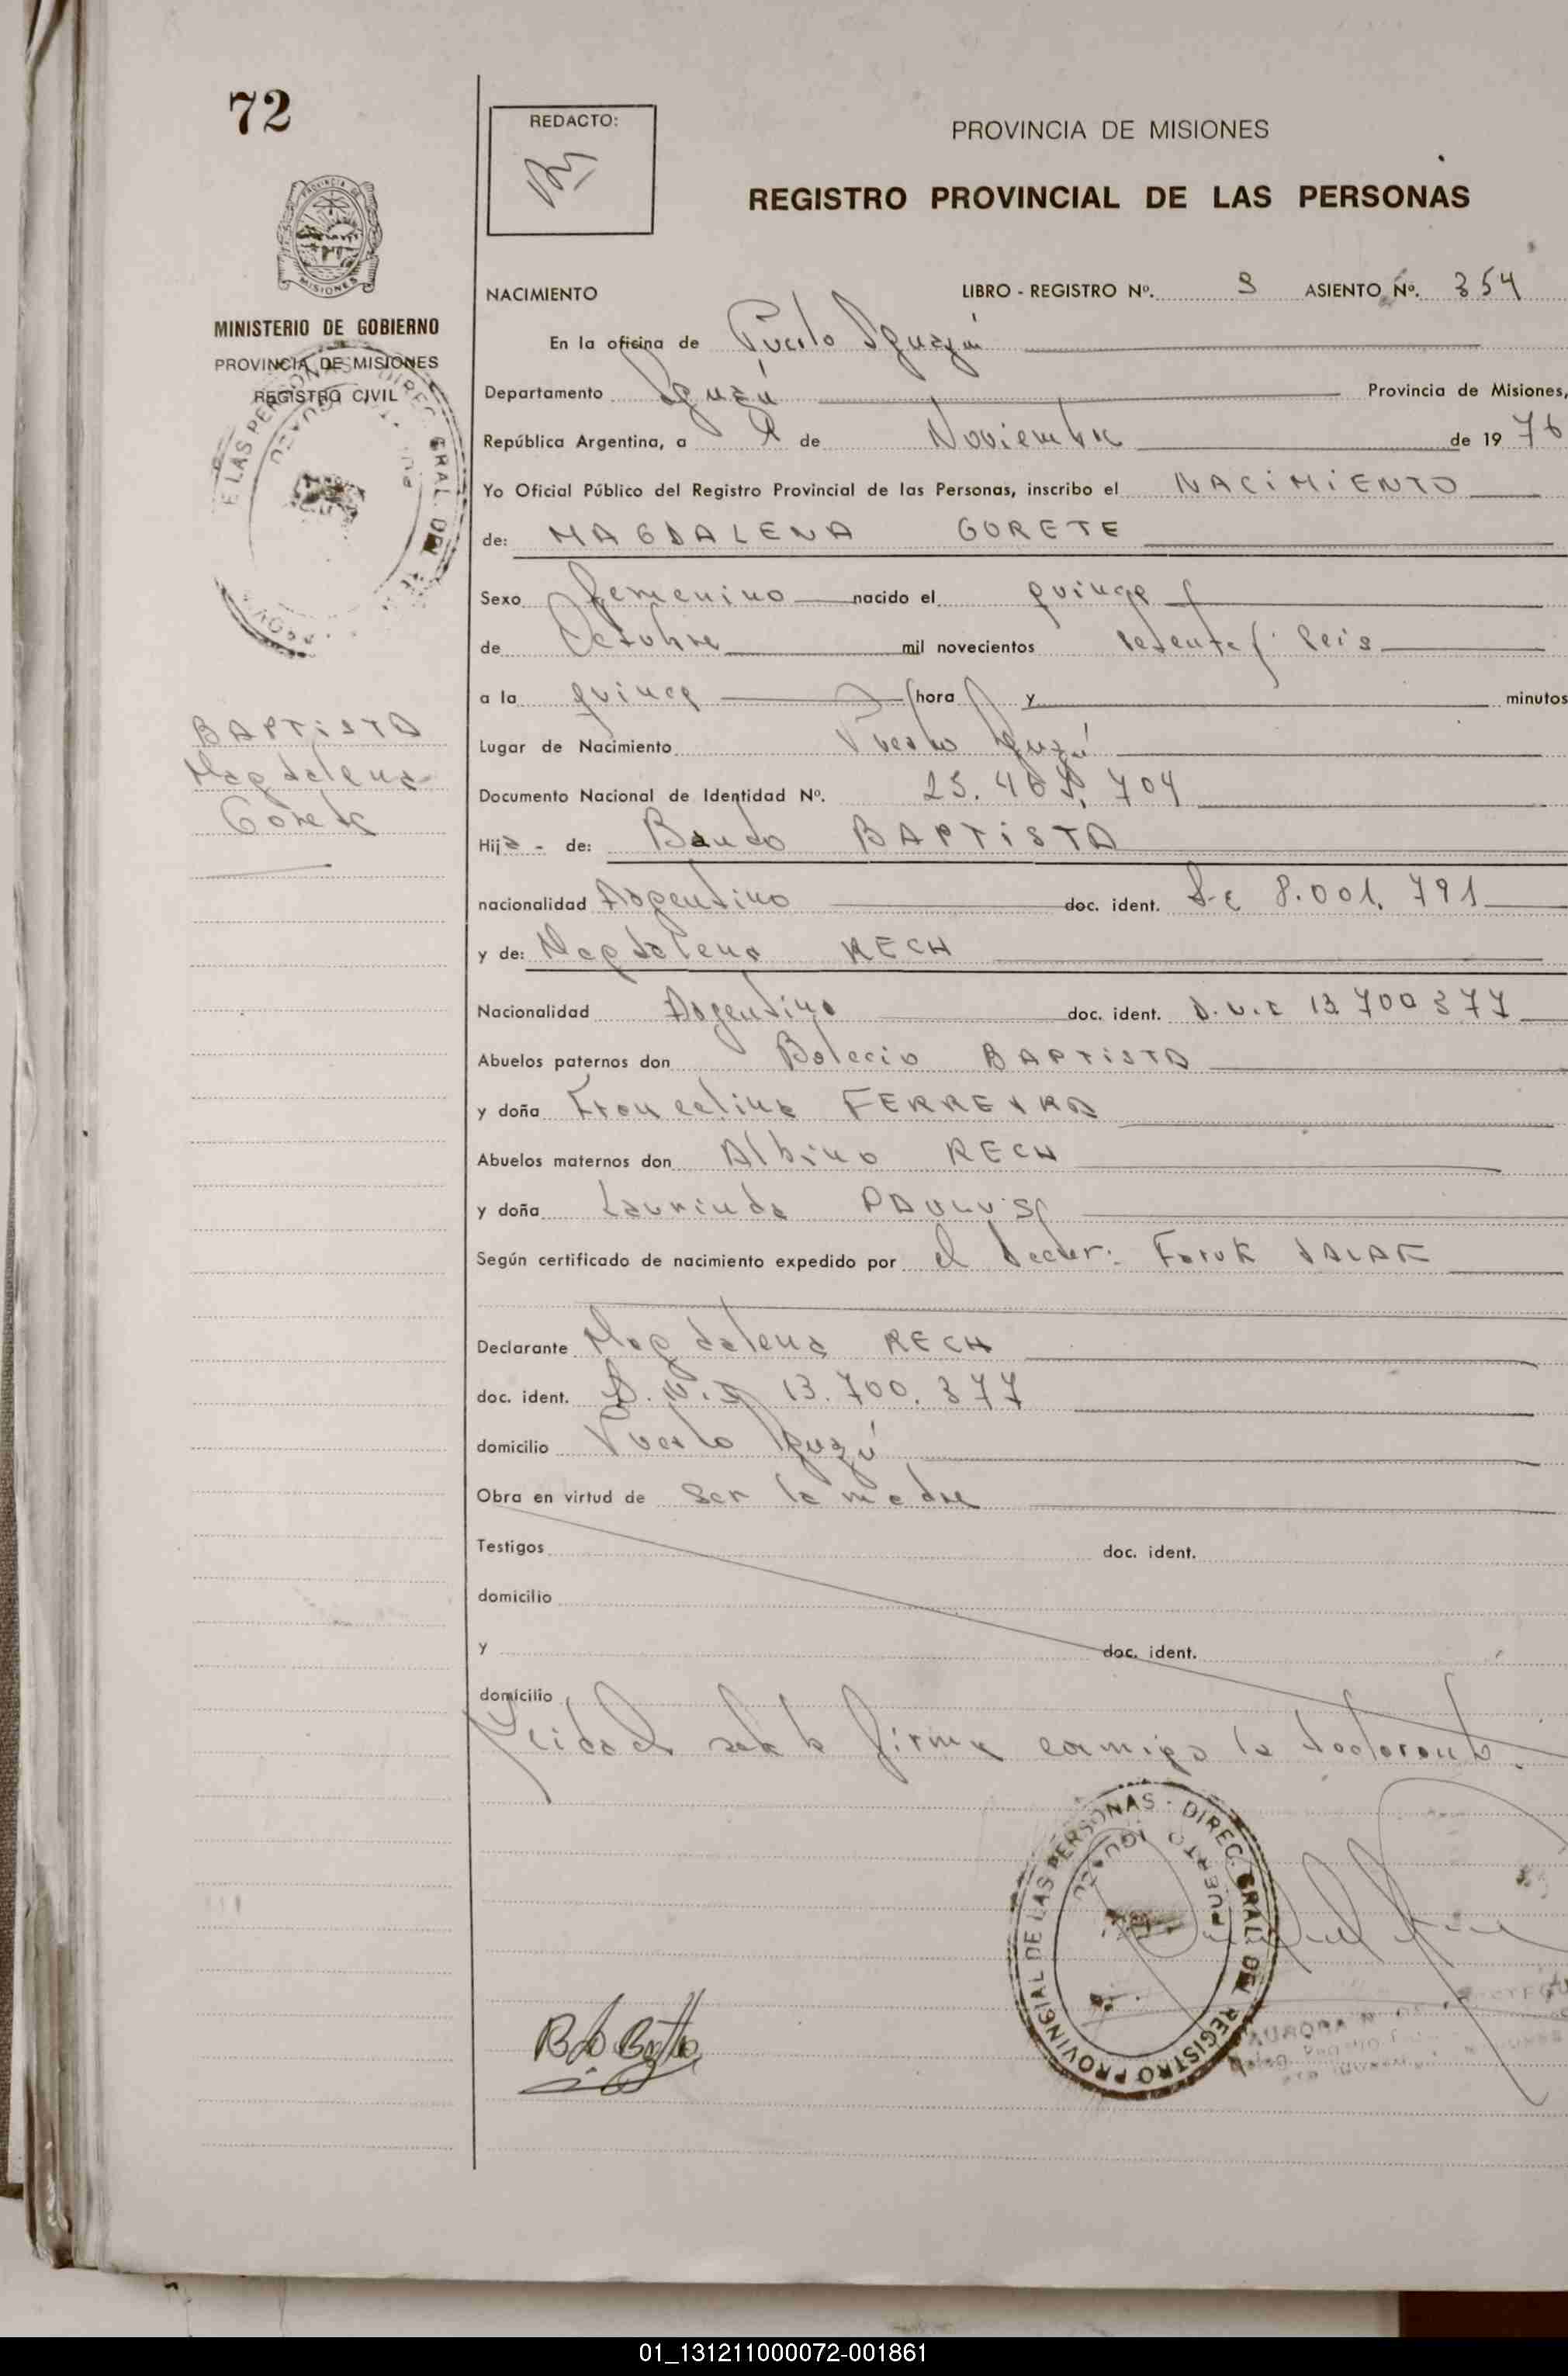 72
REDACTO:
PROVINCIA DE MISIONES
REGISTRO PROVINCIAL DE LAS PERSONAS
MISIONES
MINISTERIO DE GOBIERNO
PROVINCIA DE MISIONES
REGISTRO CIVIL
NACIMIENTO LIBRO - REGISTRO Nº. ASIENTO Nº. 354
En la oficina de Puerto Iguazú
Departamento Iguazú Provincia de Misiones,
República Argentina, a de Noviembre de 19 76
Yo Oficial Público del Registro Provincial de las Personas, inscribo el NACIMIENTO
de: MAGDALENA GORETE
Sexo femenino nacido el quince
de Octubre mil novecientos setenta y seis
a la quince hora y minutos
BAPTISTA
Magdalena
Gorete
Lugar de Nacimiento Puerto Iguazú
Documento Nacional de Identidad Nº. 704
Hija - de: BAPTISTA
nacionalidad Argentino doc. ident. 8.001.791
y de: Magdalena RECH
Nacionalidad Argentina doc. ident. D.N.I 13 700 377
Abuelos paternos don BAPTISTA
y doña FERREYRA
Abuelos maternos don Albino RECH
y doña Laurinda
Según certificado de nacimiento expedido por el Doctor: Faruk
Declarante Magdalena RECH
doc. ident. D.N.I 13.700.377
domicilio Puerto Iguazú
Obra en virtud de ser la madre
Testigos doc. ident.
domicilio
y doc. ident.
domicilio
Leida el acta la firma conmigo la declarante.
REGISTRO PROVINCIAL DE LAS PERSONAS - DIREC. GRAL. DEL
PUERTO IGUAZU
AURORA
01_131211000072-001861